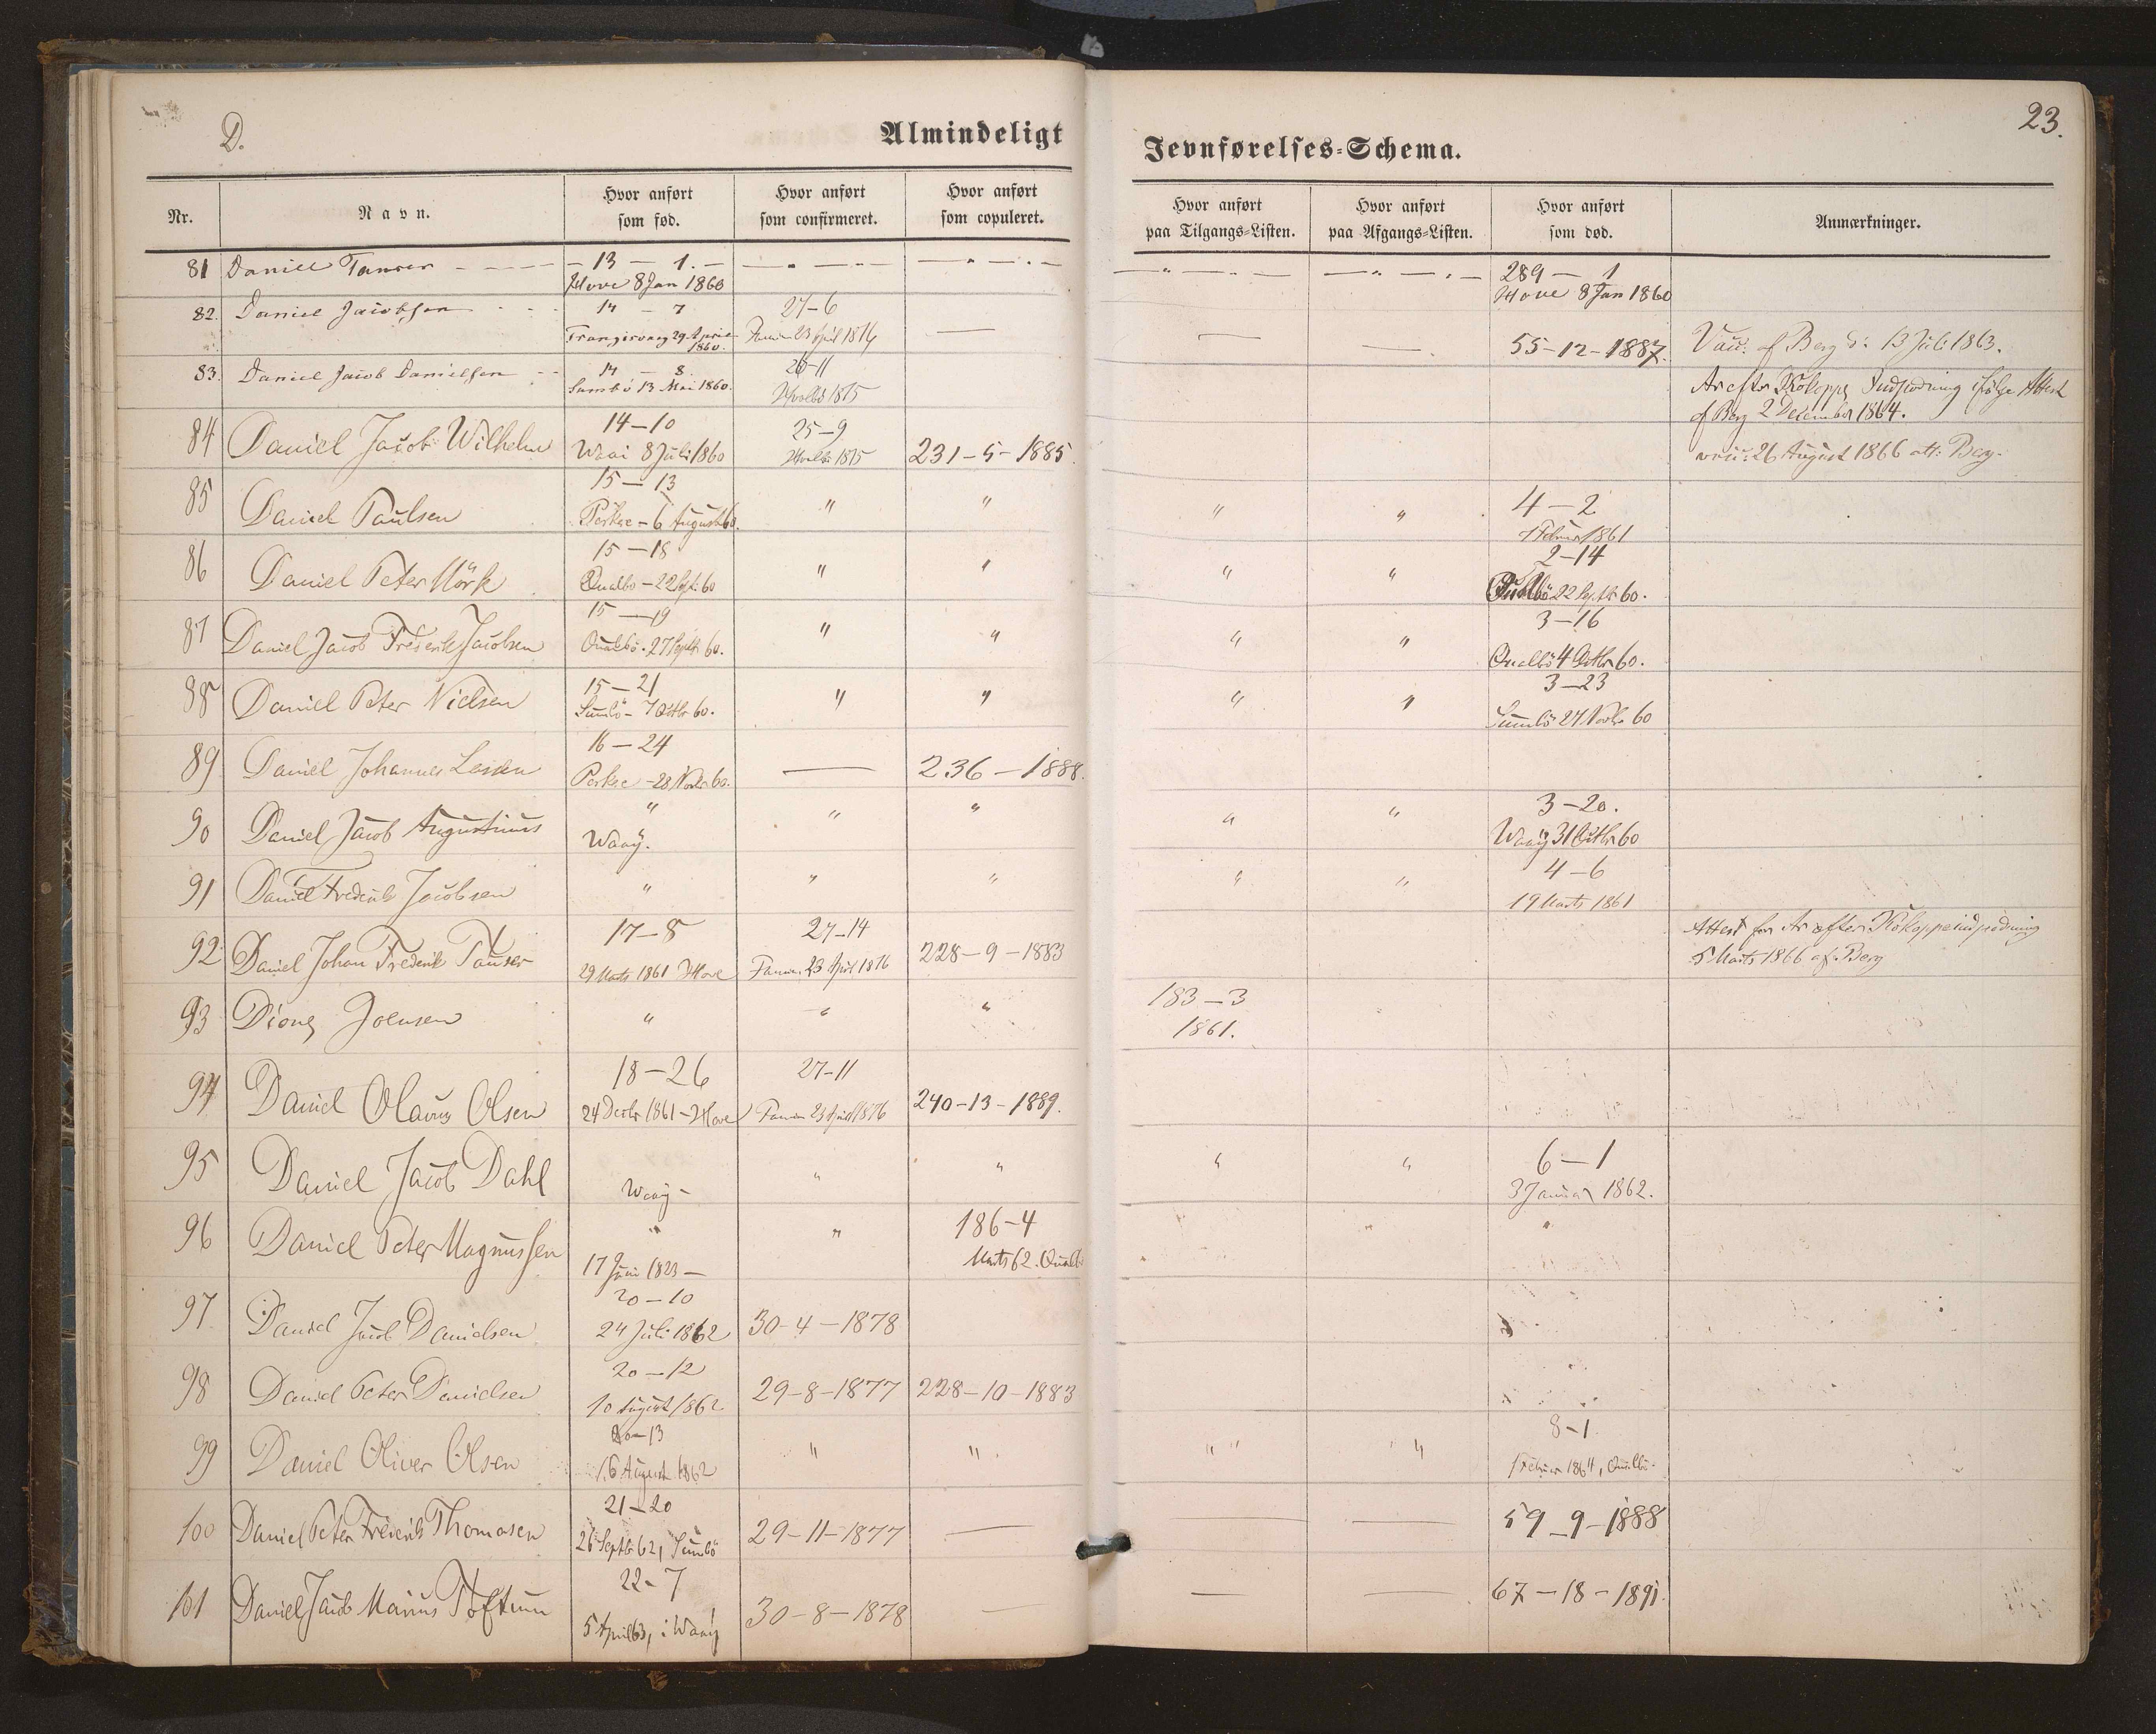 D.
Almindeligt
Jevnførelses-Schema.
23.
Nr.
Navn.
Hvor anført
som fød.
Hvor anført
som confirmeret.
Hvor anført
som copuleret.
Hvor anført
paa Tilgangs-Listen.
Hvor anført
paa Afgangs-Listen.
Hvor anført
som død.
Anmærkninger.
81 Daniel — 13 — 1. — — " — — " — — " — — " — 289 — 1
Hove 8 Jan 1860 Hove 8 Jan 1860
82. Daniel Jacobsen 14 — 7 27-6
29 April 1860. 23 April 1876 — — — 55-12-1887. Vacc. af Berg d: 13 Juli 1863.
83. Daniel Jacob Danielsen 14 — 8. 26-11
Sumbö 13 Mai 1860. Hvalbö 1875 Ar efter Kokoppe Indpodning ifølge Attest
af Berg 2 December 1864.
84 Daniel Jacob Wilhelm 14-10 25-9
8 Juli 1860 1875 231-5-1885. vacc: 26 August 1866 att: Berg.
85 Daniel Paulsen 15-13 " " " " 4-2
Porkere - 6 August 60. 1 Februar 1861
86 Daniel Peter Mörk 15-18 " " " " 2-14
Qualbo - 22 Sept. 60 22 Septbr 60.
87 Daniel Jacob Frederik Jacobsen 15-19 " " " " 3-16
Qualbö. 27 Septbr 60. Qualbö 4 Octbr 60.
88 Daniel Peter Nielsen 15-21 " " " " 3-23
Sumbö - 7 Octbr 60. Sumbö 27 Novbr 60
89 Daniel Johannes 16-24
28 Novbr 60. — 236-1888.
90 Daniel Jacob Augustinus " " " " " 3-20.
Waaÿ. Waaÿ 31 Octbr 60
91 Daniel Frederik Jacobsen " " " " " 4-6
19 Marts 1861
92. Daniel Johan Frederik 17-8 27-14
29 Marts 1861 Hove 23 April 1876 228-9-1883 Attest for Ar efter Kokoppeindpodning
5 Marts 1866 af Berg
93 Joensen " " " 183-3
1861.
94 Daniel Olaus Olsen 18-26 27-11
24 Decbr 1861 - Hove 23 April 1876 240-13-1889.
95 Daniel Jacob Dahl " " " " 6-1
Waaÿ - 3 Januar 1862.
96 Daniel Peter Magnussen " " 186-4 " "
17 Juni 1823 — Marts 62. Qualb
97 Daniel Jacob Danielsen 20-10
24 Juli 1862 30-4-1878
98 Daniel Peter Danielsen 20-12
10 August 1862 29-8-1877 228-10-1883
99 Daniel Oliver Olsen 20-13 " " " " " 8-1
16 August 1862 1 Februar 1864, Qualbö.
100 Daniel Peter Frederik Thomasen 21-20
26 Septbr 62, Sumbö 29-11-1877 — — — 59-9-1888
101 Daniel Jacob Marius Toftum 22-7
5 April 63, i Waaÿ 30-8-1878 — — — 67-18-1891.